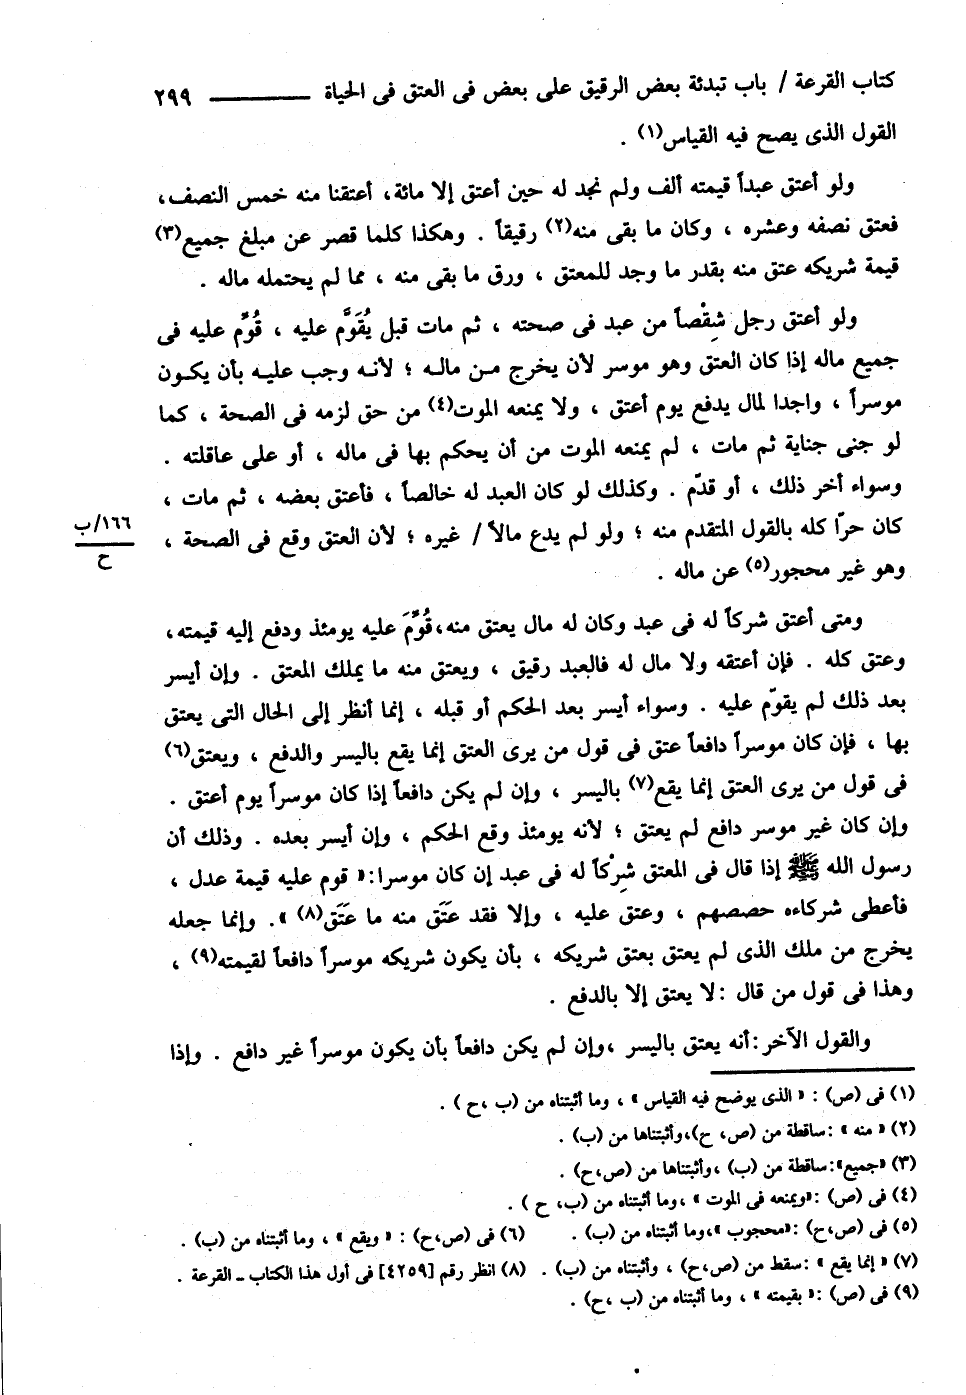 كتاب القرعة / باب تبدئة بعض الرقيق على بعض فى العتق فى الحياة ـــــــــ ٢٩٩
القول الذى يصح فيه القياس(١) .
ولو أعتق عبداً قيمته ألف ولم نجد له حين أعتق إلا مائة، أعتقنا منه خمس النصف،
فعتق نصفه وعشره ، وكان ما بقى منه(٢) رقيقاً . وهكذا كلما قصر عن مبلغ جميع(٣)
قيمة شريكه عتق منه بقدر ما وجد للمعتق ، ورق ما بقى منه ، مما لم يحتمله ماله .
ولو أعتق رجل شِقْصاً من عبد فى صحته ، ثم مات قبل يُقَوَّم عليه ، قُوِّم عليه فى
جميع ماله إذا كان العتق وهو موسر لأن يخرج من ماله ؛ لأنه وجب عليه بأن يكون
موسراً ، واجدا لمال يدفع يوم أعتق ، ولا يمنعه الموت(٤) من حق لزمه فى الصحة ، كما
لو جنى جناية ثم مات ، لم يمنعه الموت من أن يحكم بها فى ماله ، أو على عاقلته .
وسواء أخر ذلك ، أو قدّم . وكذلك لو كان العبد له خالصاً ، فأعتق بعضه ، ثم مات ،
كان حرّا كله بالقول المتقدم منه ؛ ولو لم يدع مالاً / غيره ؛ لأن العتق وقع فى الصحة ،
١٦٦/ب
ح
وهو غير محجور(٥) عن ماله .
ومتى أعتق شركاً له فى عبد وكان له مال يعتق منه،قُوِّمَ عليه يومئذ ودفع إليه قيمته،
وعتق كله . فإن أعتقه ولا مال له فالعبد رقيق ، ويعتق منه ما يملك المعتق . وإن أيسر
بعد ذلك لم يقوّم عليه . وسواء أيسر بعد الحكم أو قبله ، إنما أنظر إلى الحال التى يعتق
بها ، فإن كان موسراً دافعاً عتق فى قول من يرى العتق إنما يقع باليسر والدفع ، ويعتق(٦)
فى قول من يرى العتق إنما يقع(٧) باليسر ، وإن لم يكن دافعاً إذا كان موسراً يوم أعتق .
وإن كان غير موسر دافع لم يعتق ؛ لأنه يومئذ وقع الحكم ، وإن أيسر بعده . وذلك أن
رسول الله ﷺ إذا قال فى المعتق شِرْكاً له فى عبد إن كان موسرا:« قوم عليه قيمة عدل ،
فأعطى شركاءه حصصهم ، وعتق عليه ، وإلا فقد عَتَق منه ما عَتَق(٨) ». وإنما جعله
يخرج من ملك الذى لم يعتق بعتق شريكه ، بأن يكون شريكه موسراً دافعاً لقيمته(٩) ،
وهذا فى قول من قال :لا يعتق إلا بالدفع .
والقول الآخر:أنه يعتق باليسر ،وإن لم يكن دافعاً بأن يكون موسراً غير دافع . وإذا
(١) فى (ص) : « الذى يوضح فيه القياس » ، وما أثبتناه من (ب ،ح ) .
(٢) « منه » :ساقطة من (ص، ح)،وأثبتناها من (ب) .
(٣) «جميع»:ساقطة من (ب) ،وأثبتناها من (ص،ح) .
(٤) فى (ص) :«ويمنعه فى الموت » ،وما أثبتناه من (ب، ح ) .
(٥) فى (ص،ح) :«محجوب »،وما أثبتناه من (ب) . (٦) فى (ص،ح) : « ويقع » ، وما أثبتناه من (ب) .
(٧) « إنما يقع » :سقط من (ص،ح) ، وأثبتناه من (ب) . (٨) انظر رقم [٤٢٥٩] فى أول هذا الكتاب ـ القرعة .
(٩) فى (ص) :« بقيمته » ، وما أثبتناه من (ب ،ح) .